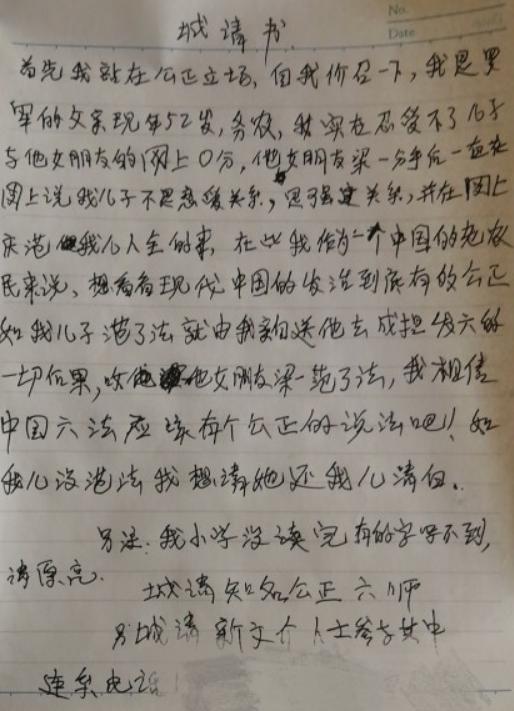 No.
Date
城请书
首先我站在公正立场，自我价召一下，我是罗
军的父亲现年52岁，务农，我实在忍受不了儿子
与他女朋友的网上0分，他女朋友梁一分手后一直在
网上说我儿子不是恋爱关系，思强建关系，并在网上
我儿人全的事，在此我作为一个中国的老农
民来说，想看看现代中国的发法到底有的公正
如我儿子范了法就由我亲自送他去成担发六的
一切后果，他女朋友梁一范了法，我相信
中国六法应该有个公正的说法吧！如
我儿没范法我想请她还我儿清白。
另注：我小学没读完有的字写不到，
请原亮。
城请知名公正六师
另城请新文介人士参与其中
连系电话